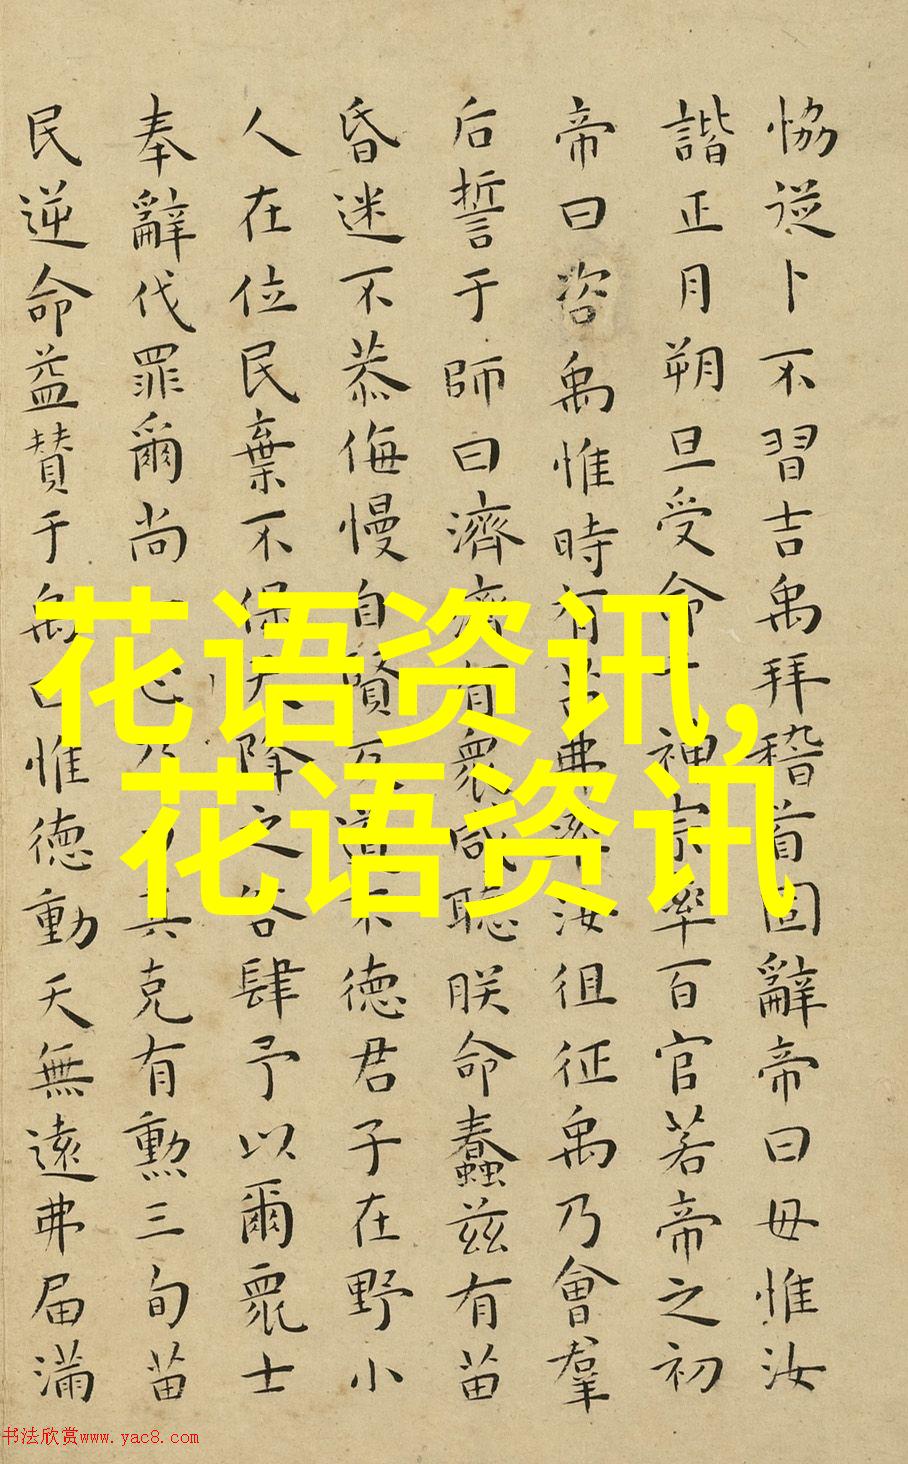 恊從卜不習吉禹拜稽首固辭帝曰毋惟汝
諧正月朔旦受命神宗率百官若帝之初
帝曰咨禹惟時有苗弗率汝徂征禹乃會羣
后誓于師曰濟濟有衆咸聴朕命蠢茲有苗
昏迷不恭侮慢自賢反道不德君子在野小
人在位民棄不保天降之咎肆予以爾衆士
奉辭伐罪爾尚一心力其克有勲三旬苗
民逆命益贊于禹曰惟德動天無遠弗届滿
花语资讯,
花语资讯
书法欣赏www.yac8.com